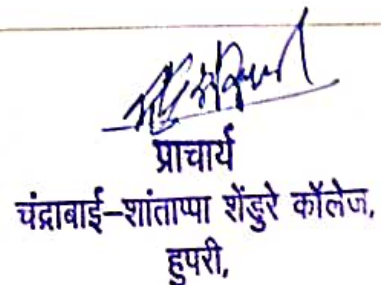 प्राचार्य
चंद्राबाई-शांताप्पा शेंडुरे कॉलेज,
हुपरी,